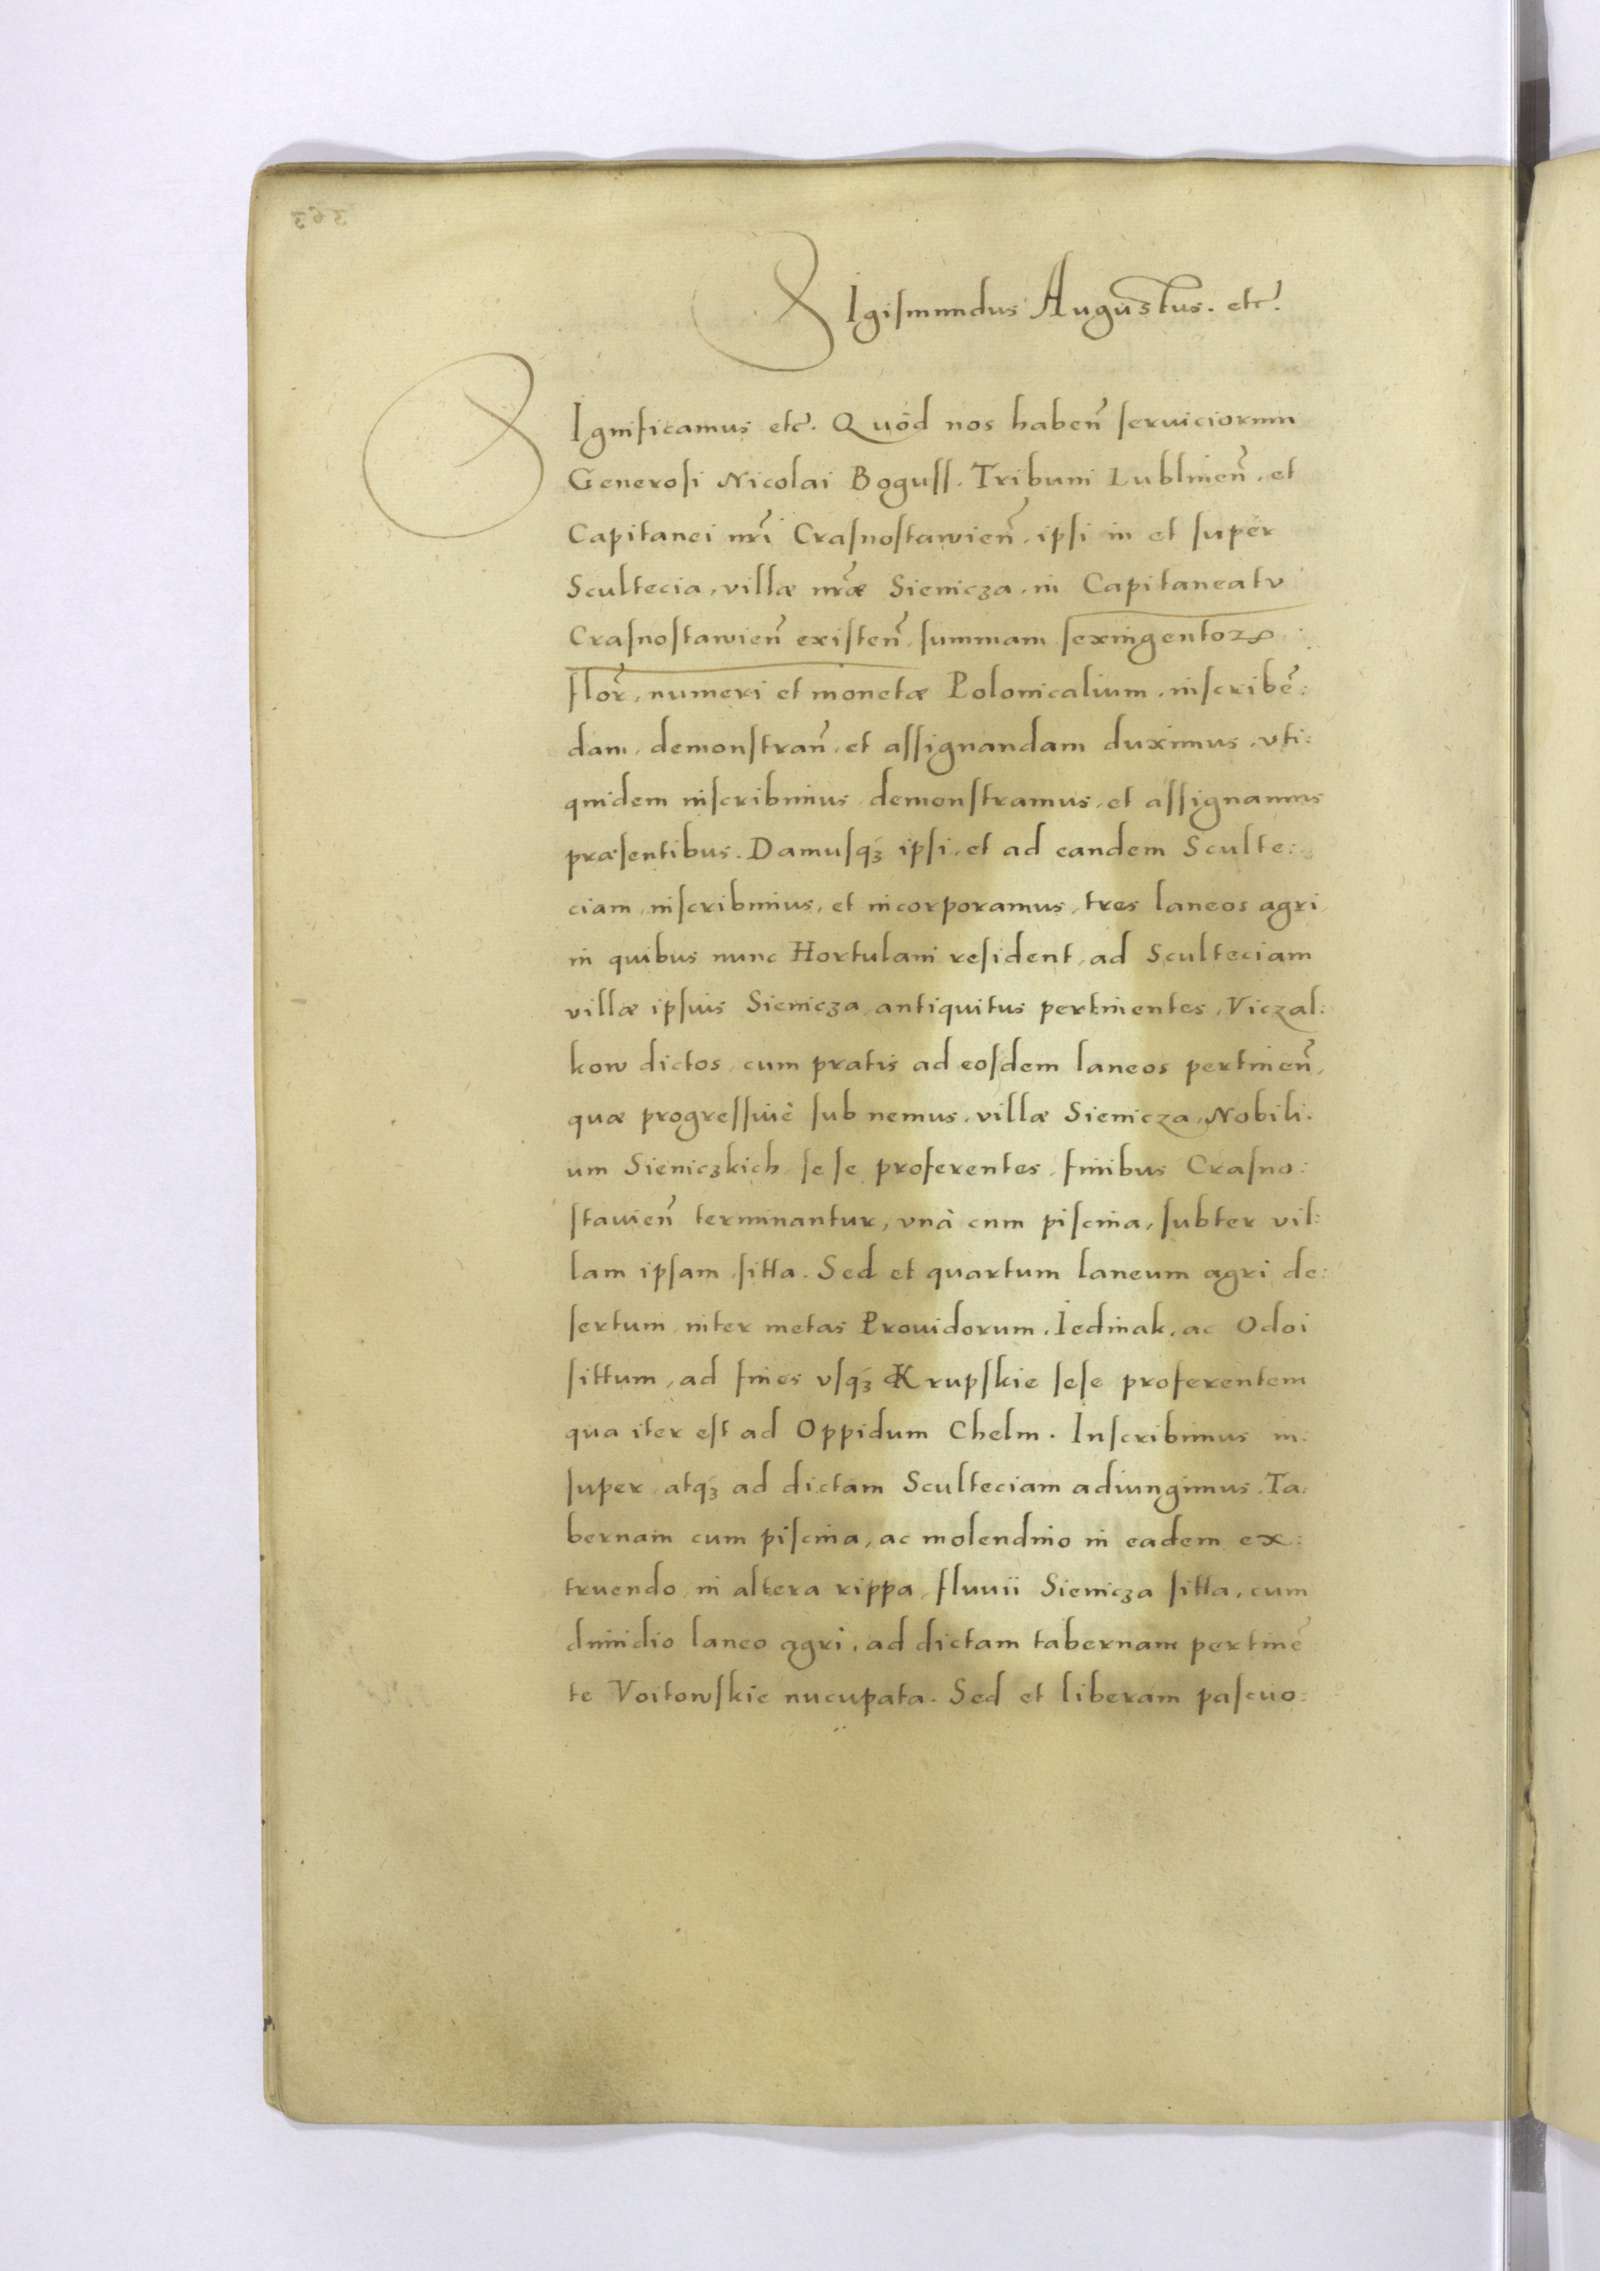 SIgismundus Augustus. etc̃.
SIgnificamus etc̃. Quòd nos habeñ seruiciorum
Generosi Nicolai Boguss. Tribuni Lublineñ. et
Capitanei nr̃i Crasnostawieñ. ipsi in et super
Scultecia, villæ nr̃æ Sienicza, in Capitaneatu
Crasnostawieñ existeñ. summam sexingentoꝝ
flor̃. numeri et monetæ Polonicalium, inscribē:
dam, demonstrañ, et assignandam duximus, vti:
quidem inscribimus, demonstramus, et assignamus
præsentibus. Damusqꝫ ipsi, et ad eandem Sculte:
ciam, inscribimus, et incorporamus, tres laneos agri,
in quibus nunc Hortulani resident, ad Sculteciam
villæ ipsius Sienicza, antiquitus pertinentes, Viczal:
kow dictos, cum pratis ad eosdem laneos pertineñ,
quæ progressiuè sub nemus, villæ Sienicza, Nobili:
um Sieniczkich, se se proferentes, finibus Crasno:
stauieñ terminantur, vnà cum piscina, subter vil:
lam ipsam sitta. Sed et quartum laneum agri de:
sertum, inter metas Prouidorum, Iedinak, ac Odoi
sittum, ad fines vsqꝫ Krupskie sese proferentem
qua iter est ad Oppidum Chelm. Inscribimus in:
super, atqꝫ ad dictam Sculteciam adiungimus, Ta:
bernam cum piscina, ac molendino in eadem ex:
truendo, in altera rippa, fluuii Sienicza sitta, cum
dimidio laneo agri, ad dictam tabernam pertinē
te Voitowskie nucupata. Sed et liberam pascuo:
363